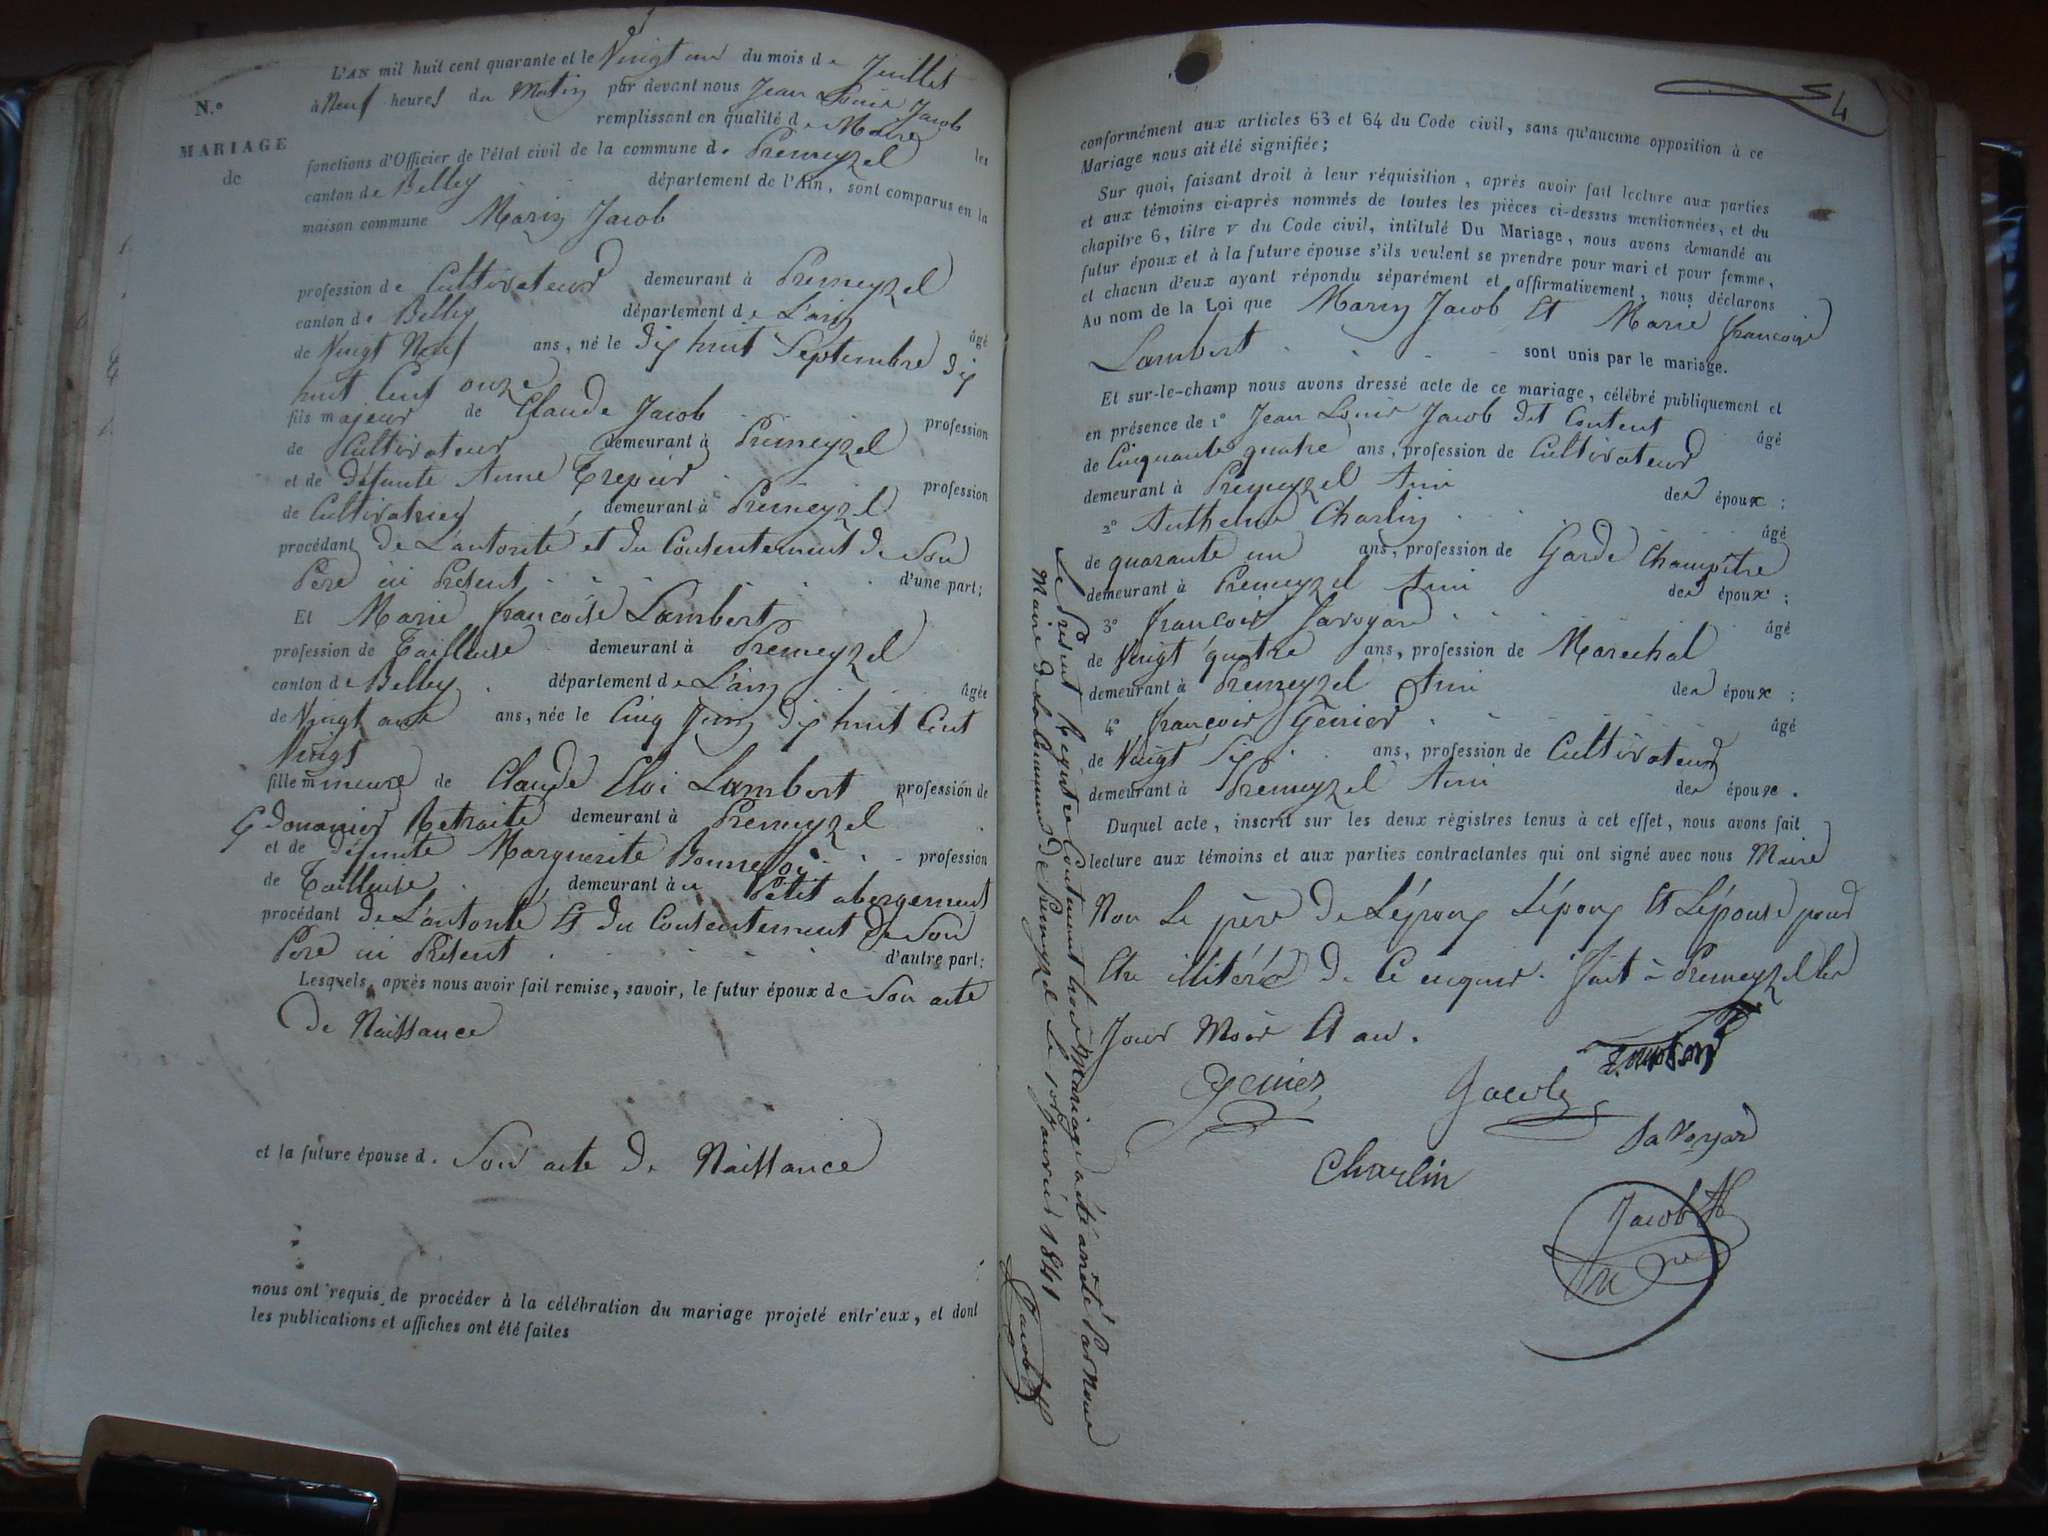 L'AN mil huit cent quarante et le Vingt un du mois de Juillet
à Neuf heures du Matin par devant nous Jean Louis Jacob
remplissant en qualité de Maire les
N.º
MARIAGE
de
fonctions d'Officier de l'état civil de la commune de Premeyzel
canton de Belley département de l'Ain, sont comparus en la
maison commune Marin Jacob
profession de Cultivateur demeurant à Premeyzel
canton de Belley département de L'ain âgé
de Vingt Neuf ans, né le dix huit Septembre dix
huit Cent onze
fils majeur de Claude Jacob profession
de Cultivateur demeurant à Premeyzel
et de défunte Anne Trepier profession
de Cultivatrice demeurant à Premeyzel
procédant de L'autorité et du Consentement de Son
Père ici Présent d'une part;
Et Marie françoise Lambert
profession de Tailleuse demeurant à Premeyzel
canton de Belley département de L'ain âgée
de Vingt ans ans, née le Cinq Juin dix huit Cent
Vingt
fille mineure de Claude Eloi Lambert profession de
Douanier Retraité demeurant à Premeyzel
et de défunte Marguerite profession
de Tailleuse demeurant à Petit abergement
procédant de L'autorité Et du Consentement de Son
Père ici Présent d'autre part:
Lesquels, après nous avoir fait remise, savoir, le futur époux de Son acte
de Naissance
et la future épouse d. Son acte de Naissance
nous ont requis de procéder à la célébration du mariage projeté entr'eux, et dont
les publications et affiches ont été faites
54
conformément aux articles 63 et 64 du Code civil, sans qu'aucune opposition à ce
Mariage nous ait été signifiée;
Sur quoi, faisant droit à leur réquisition, après avoir fait lecture aux parties
et aux témoins ci-après nommés de toutes les pièces ci-dessus mentionnées, et du
chapitre 6, titre V du Code civil, intitulé Du Mariage, nous avons demandé au
futur époux et à la future épouse s'ils veulent se prendre pour mari et pour femme,
et chacun d'eux ayant répondu séparément et affirmativement, nous déclarons
Au nom de la Loi que Marin Jacob Et Marie françoise
Lambert sont unis par le mariage.
Et sur-le-champ nous avons dressé acte de ce mariage, célébré publiquement et
en présence de 1º Jean Louis Jacob dit Content âgé
de Cinquante quatre ans, profession de Cultivateur
demeurant à Premeyzel Ami des époux;
2º Anthelme Charlin âgé
de quarante un ans, profession de Garde Champêtre
demeurant à Premeyzel Ami des époux;
3º françois Savoyard âgé
de Vingt quatre ans, profession de Marechal
demeurant à Premeyzel Ami des époux;
4º françois Genier âgé
de Vingt Six ans, profession de Cultivateur
demeurant à Premeyzel Ami des époux.
Duquel acte, inscrit sur les deux régistres tenus à cet effet, nous avons fait
lecture aux témoins et aux parties contractantes qui ont signé avec nous Maire
Non Le père de L'époux L'époux Et L'épouse pour
Etre illitéré de Ce enquis. fait à Premeyzel les
Jour Mois Et an.
Genier Jacob
Savoyard
Charlin
Jacob
Le Présent Registre Contenant Mariage a été arrêté Par Nous
Maire de la Commune de Premeyzel Le 1er Janvier 1841
Jacob